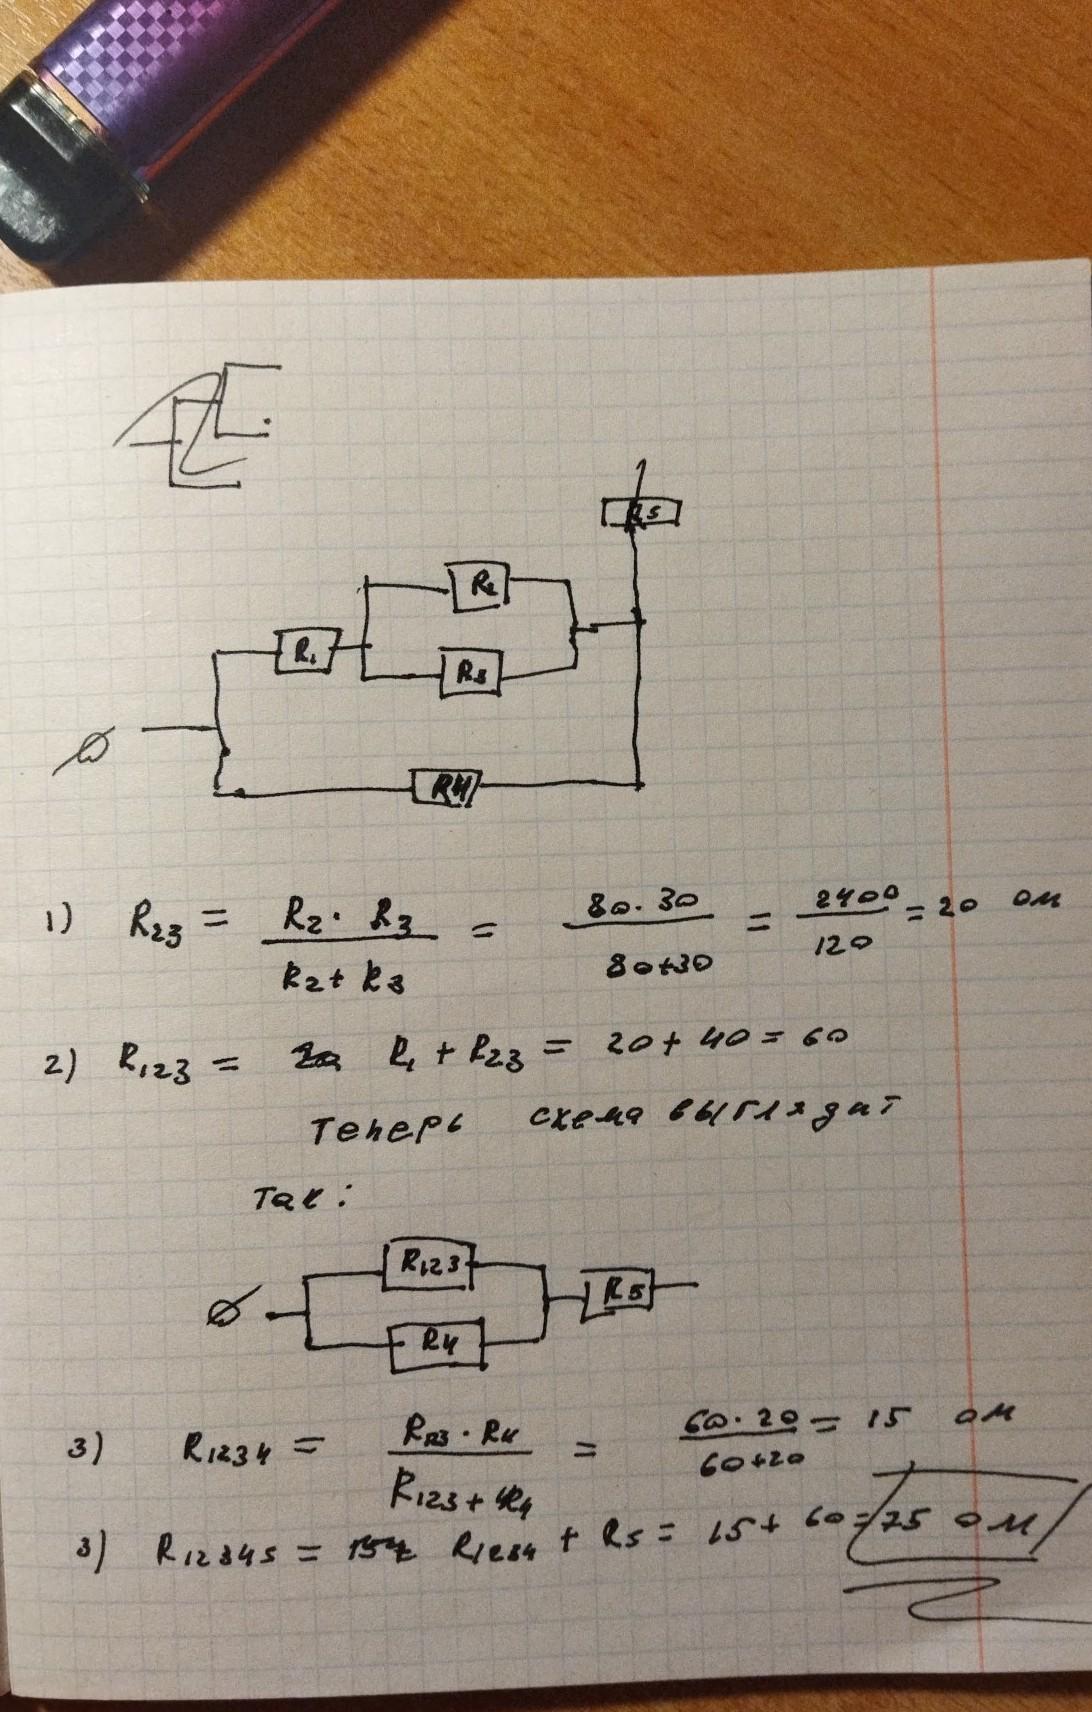 R5
R2
R1
R3
R4
1) R23 = R2 · R3 / R2 + R3 = 80 · 30 / 80+30 = 2400 / 120 = 20 ом
2) R123 = R1 + R23 = 20 + 40 = 60
теперь схема выглядит
так:
R123
R5
R4
3) R1234 = R123 · R4 / R123 + R4 = 60 · 20 / 60+20 = 15 ом
3) R12345 = R1234 + R5 = 15 + 60 = 75 ом